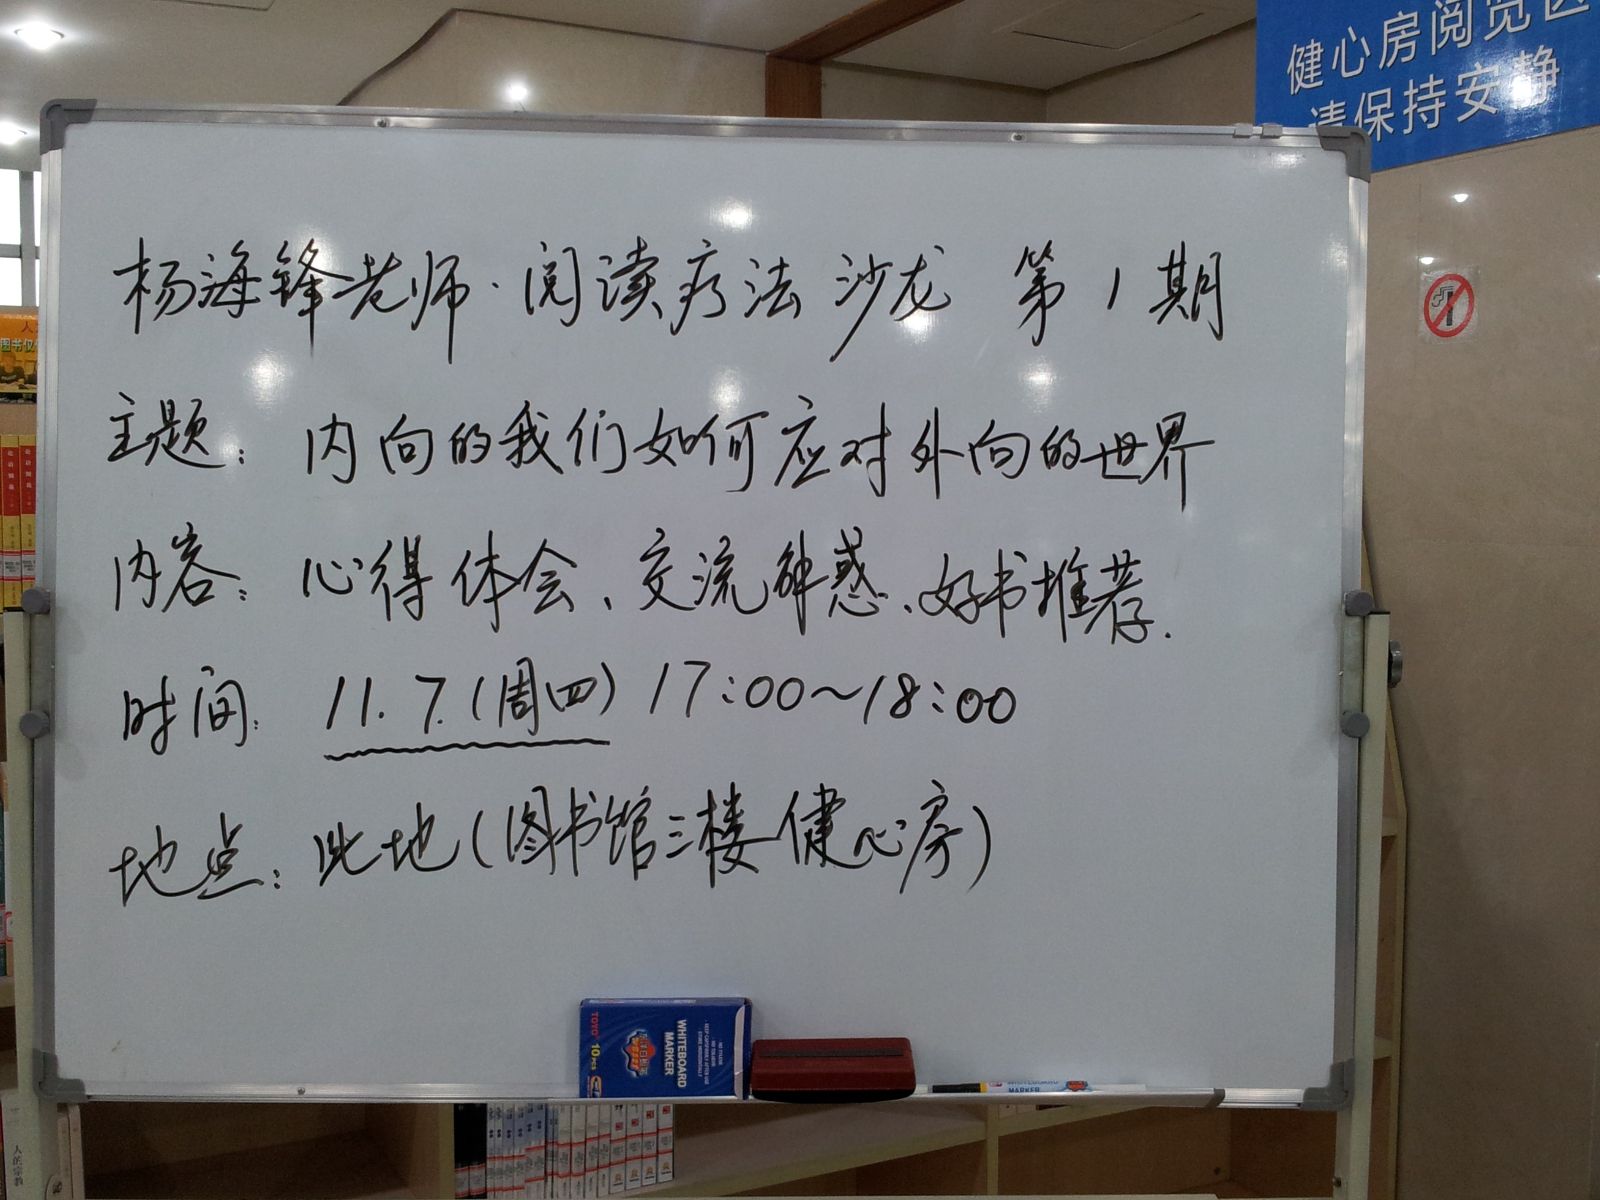 健心房阅览区
请保持安静
杨海锋老师·阅读疗法 沙龙 第1期
主题：内向的我们如何应对外向的世界
内容：心得体会、交流解惑、好书推荐.
时间：11.7.(周四) 17:00～18:00
地点：此地(图书馆三楼健心房)
TOYO 10PCS
WHITEBOARD
MARKER
WHITEBOARD
MARKER
人的宗教